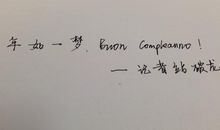 年如一梦, Buon Compleanno!
— 记者站 敬